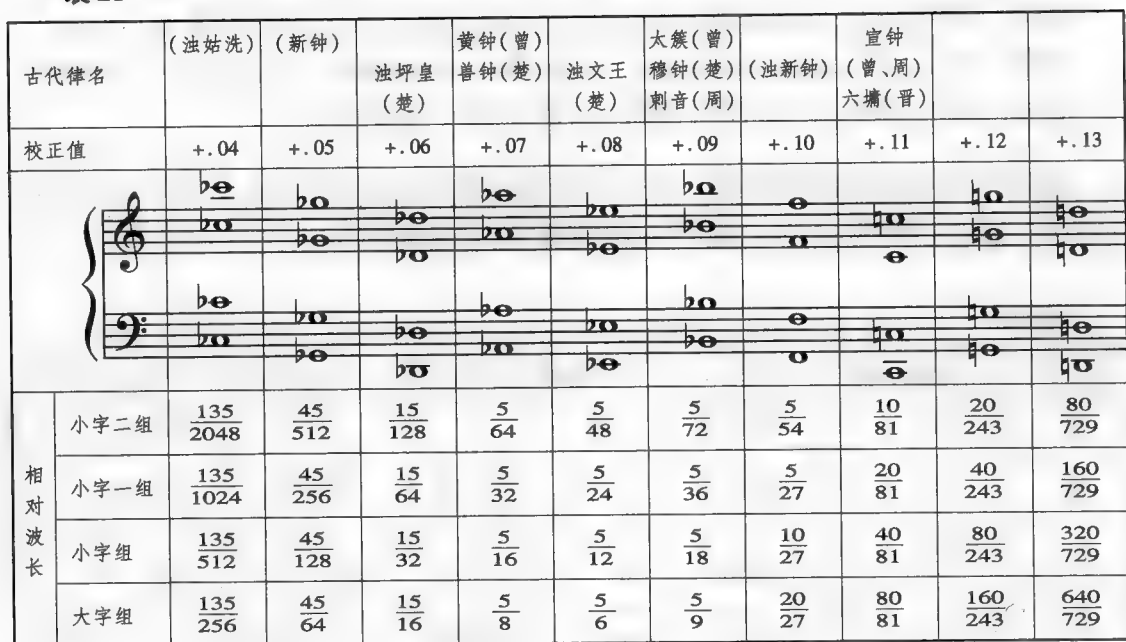 (浊姑洗) (新钟) 黄钟(曾) 太簇(曾) 宣钟
古代律名 浊坪皇 兽钟(楚) 浊文王 穆钟(楚) (浊新钟) (曾、周)
(楚) (楚) 剌音(周) 六墉(晋)
校正值 +.04 +.05 +.06 +.07 +.08 +.09 +.10 +.11 +.12 +.13
相对波长
小字二组 135/2048 45/512 15/128 5/64 5/48 5/72 5/54 10/81 20/243 80/729
小字一组 135/1024 45/256 15/64 5/32 5/24 5/36 5/27 20/81 40/243 160/729
小字组 135/512 45/128 15/32 5/16 5/12 5/18 10/27 40/81 80/243 320/729
大字组 135/256 45/64 15/16 5/8 5/6 5/9 20/27 80/81 160/243 640/729